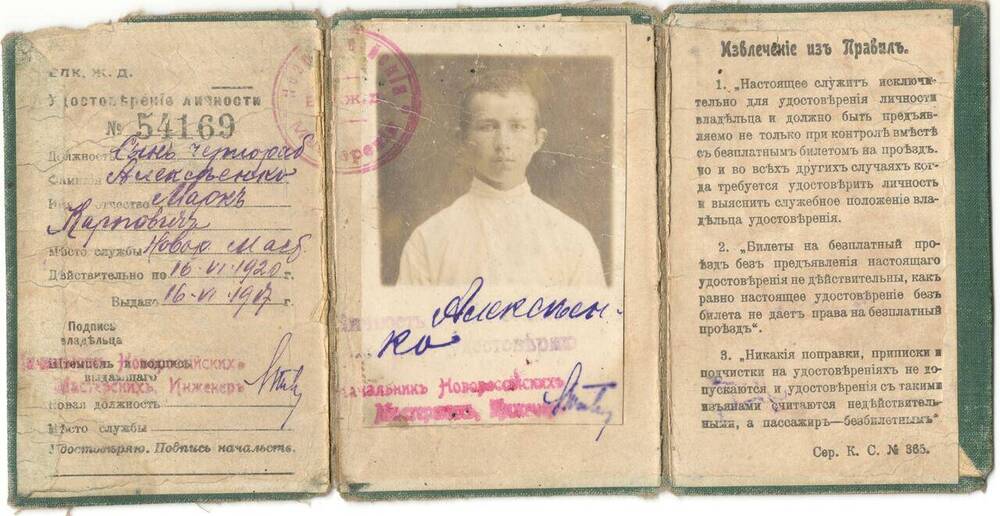 Влк. Ж. Д.
Удостовѣреніе личности
№ 54169
Должность Сынъ
Фамилія Алексѣенко
Имя, отчество Маркъ
Карповичъ
Мѣсто службы Новор. Маст.
Дѣйствительно по 16·VI·1920 г.
Выдано 16·VI·1917 г.
Подпись
владѣльца
Штемпель и подпись
выдающаго
Начальникъ Новороссійскихъ
Мастерскихъ, Инженеръ
Новая должность
Мѣсто службы
Удостовѣряю. Подпись начальств.
Личность Алексѣен-
ко удостовѣряю
Начальникъ Новороссійскихъ
Мастерскихъ, Инженеръ
Извлеченіе изъ Правилъ.
1. „Настоящее служитъ исключи-
тельно для удостовѣренія личности
владѣльца и должно быть предъяв-
ляемо не только при контролѣ вмѣстѣ
съ безплатнымъ билетомъ на проѣздъ.
но и во всѣхъ другихъ случаяхъ ког-
да требуется удостовѣрить личность
и выяснить служебное положеніе вла-
дѣльца удостовѣренія.
2. „Билеты на безплатный про-
ѣздъ безъ предъявленія настоящаго
удостовѣренія не дѣйствительны, какъ
равно настоящее удостовѣреніе безъ
билета не даетъ права на безплатный
проѣздъ“.
3. „Никакія поправки, приписки и
подчистки на удостовѣреніяхъ не до-
пускаются и удостовѣренія съ такими
изъянами считаются недѣйствитель-
ными, а пассажиръ—безбилетнымъ“
Сер. К. С. № 365.